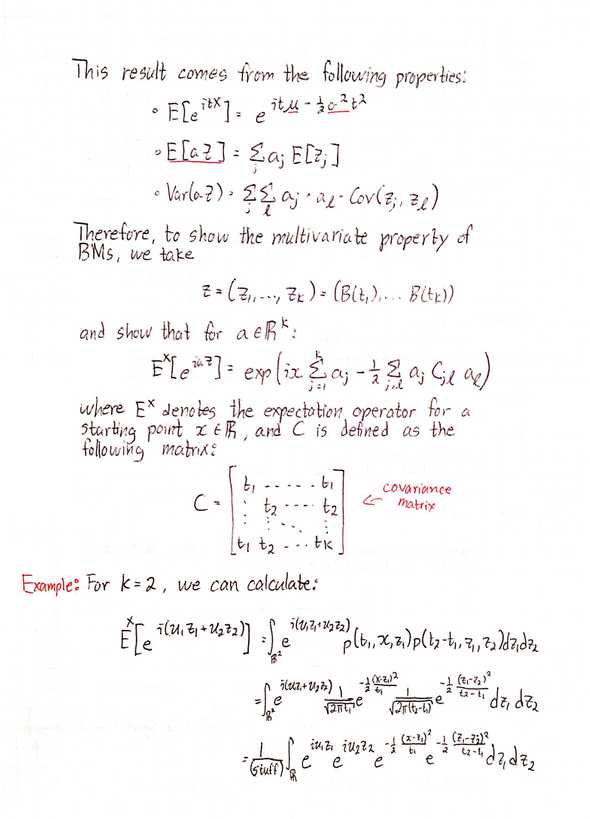 This result comes from the following properties:
• E[e^{itX}] = e^{itμ - ½σ²t²}
• E[a·Z] = Σ_j a_j E[z_j]
• Var(a·Z) = Σ_j Σ_l a_j · a_l · Cov(z_j, z_l)
Therefore, to show the multivariate property of
BMs, we take
z = (z₁, ..., z_k) = (B(t₁), ... B(t_k))
and show that for a ∈ ℝ^k:
E^x[e^{ia·z}] = exp(ix Σ_{j=1}^k a_j - ½ Σ_{j,l} a_j C_{jl} a_l)
where E^x denotes the expectation operator for a
starting point x ∈ ℝ, and C is defined as the
following matrix:
C = [t₁ ------ t₁
⋮ t₂ ---- t₂
⋮ ⋮ ⋱ ⋮
t₁ t₂ --- t_k]
← covariance
matrix
Example: For k = 2, we can calculate:
E^x[e^{i(u₁z₁+u₂z₂)}] = ∫_{ℝ²} e^{i(u₁z₁+u₂z₂)} p(t₁, x, z₁) p(t₂-t₁, z₁, z₂) dz₁ dz₂
= ∫_{ℝ²} e^{i(uz₁+u₂z₂)} 1/√(2πt₁) e^{-½ (x-z₁)²/t₁} 1/√(2π(t₂-t₁)) e^{-½ (z₁-z₂)²/(t₂-t₁)} dz₁ dz₂
= 1/(stuff) ∫_ℝ e^{iu₁z₁} e^{iu₂z₂} e^{-½ (x-z₁)²/t₁} e^{-½ (z₁-z₂)²/(t₂-t₁)} dz₁ dz₂